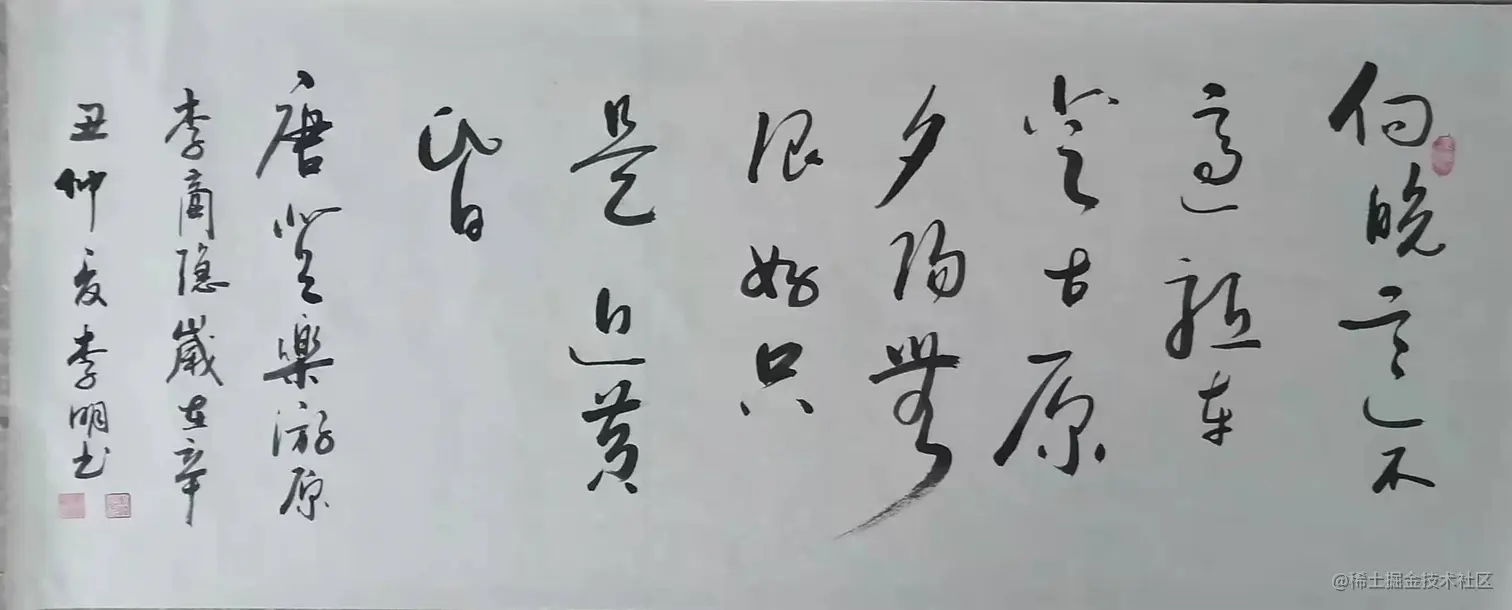 向晚意不
適驅車
登古原
夕陽無
限好只
是近黄
昏
唐登樂游原
李商隐歲在辛
丑仲夏李明书
@稀土掘金技术社区